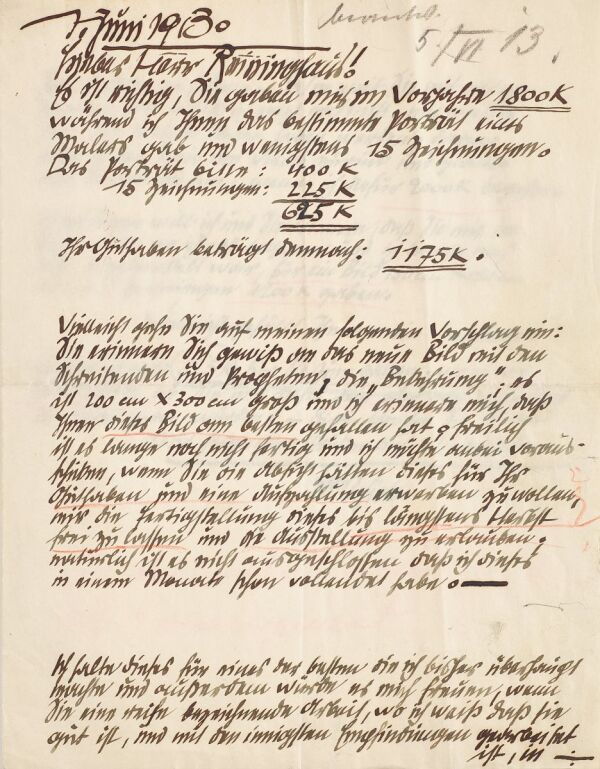 7, Juni 1913.
beantw.
5/VI 13.
Lieber Herr Reininghaus!
Es ist richtig, Sie gaben mir im Vorjahre 1800K
während ich Ihnen das bestimmte Porträt eines
Malers gab und wenigstens 15 Zeichnungen.
Das Porträt bitte: 400 K
15 Zeichnungen: 225 K
625 K
Ihr Guthaben beträgt demnach: 1175K.
Vielleicht gehn Sie auf meinen folgenden Vorschlag ein:
Sie erinnern Sich gewiß an das neue Bild mit den
Schreitenden und Propheten, die „Bekehrung“; es
ist 200 cm X 300 cm groß und ich erinnere mich, daß
Ihnen dieses Bild am besten gefallen hat. freilich
ist es lange noch nicht fertig und ich müßte anbei voraus-
schicken, wenn Sie die Absicht hätten dieses für Ihr
Guthaben und eine Aufzahlung erwerben zu wollen,
mir die Fertigstellung dieses bis längstens Herbst
frei zu lassen und die Ausstellung zu erlauben.
natürlich ist es nicht ausgeschlossen daß ich dieses
in einem Monate schon vollendet habe. —
Ich halte dieses für eines der besten die ich bisher überhaupt
machte und außerdem würde es mich freuen, wenn
Sie eine reife bezeichnende Arbeit, wo ich weiß daß sie
gut ist, und mit den innigsten Empfindungen gearbeitet
ist, in —